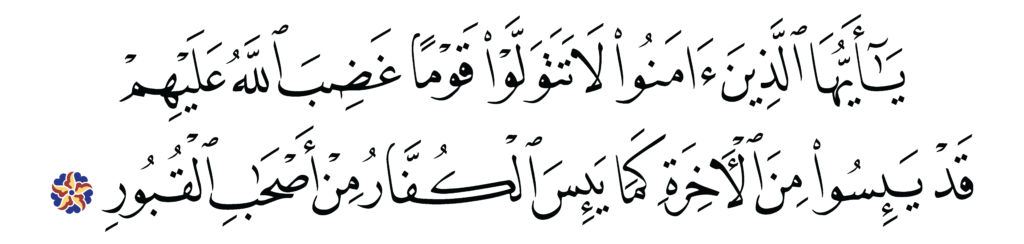 يَـٰٓأَيُّهَا ٱلَّذِينَ ءَامَنُوا۟ لَا تَتَوَلَّوْا۟ قَوْمًا غَضِبَ ٱللَّهُ عَلَيْهِمْ
قَدْ يَئِسُوا۟ مِنَ ٱلْـَٔاخِرَةِ كَمَا يَئِسَ ٱلْكُفَّارُ مِنْ أَصْحَـٰبِ ٱلْقُبُورِ